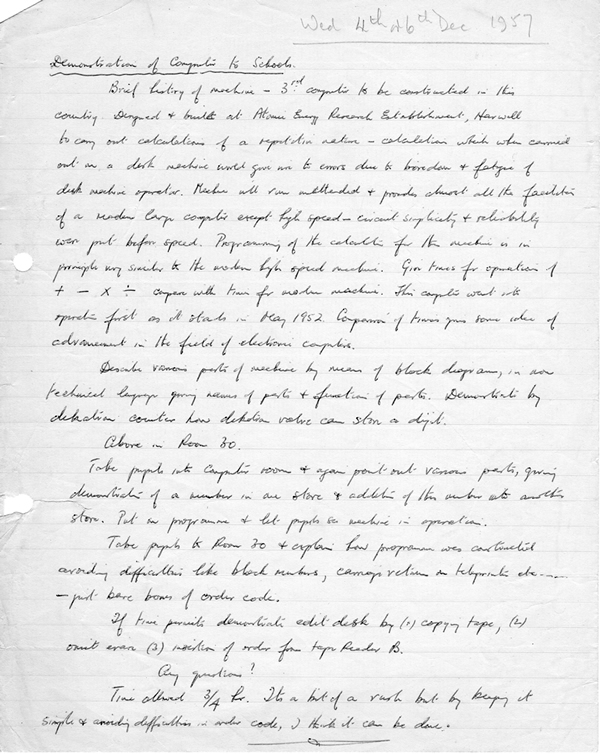 Wed 4th & 6th Dec 1957
Demonstration of Computer to Schools.
Brief history of machine - 3rd computer to be constructed in this
country. Designed & built at Atomic Energy Research Establishment, Harwell
to carry out calculations of a repetitive nature - calculations which when carried
out on a desk machine would give rise to errors due to boredom & fatigue of
desk machine operator. Machine will run unattended & provides almost all the facilities
of a modern large computer except high speed - circuit simplicity & reliability
were put before speed. Programming of the calculation for the machine is in
principle very similar to the modern high speed machine. Give times for operations of
+ - x ÷ compare with time for modern machine. This computer went into
operation first as it stands in May 1952. Comparison of times gives some idea of
advancement in the field of electronic computers.
Describe various parts of machine by means of block diagrams, in non
technical language giving names of parts & function of parts. Demonstrate by
dekatron counter how dekatron valve can store a digit.
Above in Room 30.
Take pupils into computer room & again point out various parts, giving
demonstration of a number in one store & addition of this number into another
store. Put on programme & let pupils see machine in operation.
Take pupils to Room 30 & explain how programme was constructed
avoiding difficulties like block numbers, carriage return on teleprinter etc-----
- just bare bones of order code.
If time permits demonstrate edit desk by (1) copying tape, (2)
omit erase (3) insertion of order from tape Reader B.
Any questions?
Time allowed 3/4 hr. Its a bit of a rush but by keeping it
simple & avoiding difficulties in order code, I think it can be done.